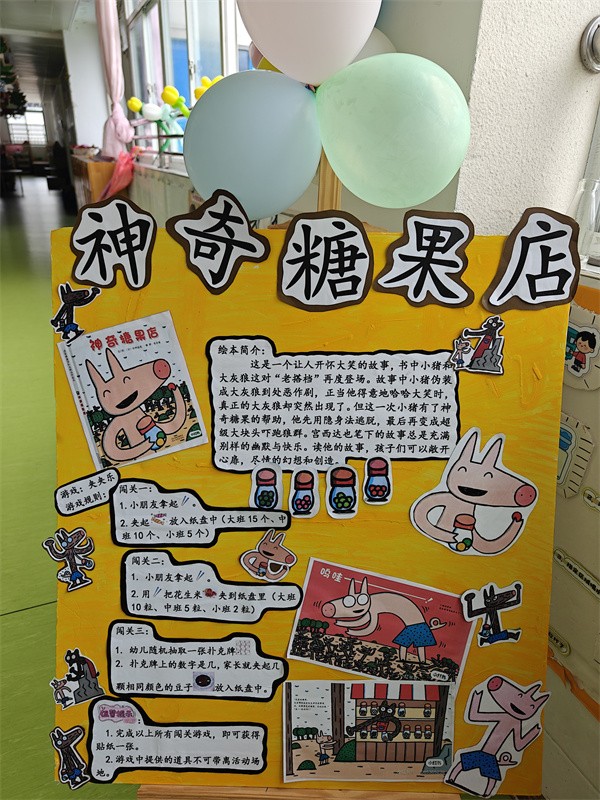 神奇糖果店
神奇糖果店
绘本简介:
这是一个让人开怀大笑的故事,书中小猪和
大灰狼这对“老搭档”再度登场。故事中小猪伪装
成大灰狼到处恶作剧,正当他得意地哈哈大笑时,
真正的大灰狼却突然出现了。但这一次小猪有了神
奇糖果的帮助,他先用隐身法逃脱,最后再变成超
级大块头吓跑狼群。宫西达也笔下的故事总是充满
别样的幽默与快乐。读他的故事,孩子们可以敞开
心扉,尽情的幻想和创造。
游戏:夹夹乐
游戏规则:
闯关一:
1.小朋友拿起
2.夹起 放入纸盘中(大班15个、中
班10个、小班5个)
闯关二:
1.小朋友拿起
2.用 把花生米 夹到纸盘里(大班
10粒、中班5粒、小班2粒)
闯关三:
1.幼儿随机抽取一张扑克牌
2.扑克牌上的数字是几,家长就夹起几
颗相同颜色的豆子 放入纸盘中。
温馨提示
1.完成以上所有闯关游戏,即可获得
贴纸一张。
2.游戏中提供的道具不可带离活动场
地。
呜哇
小红书
小红书